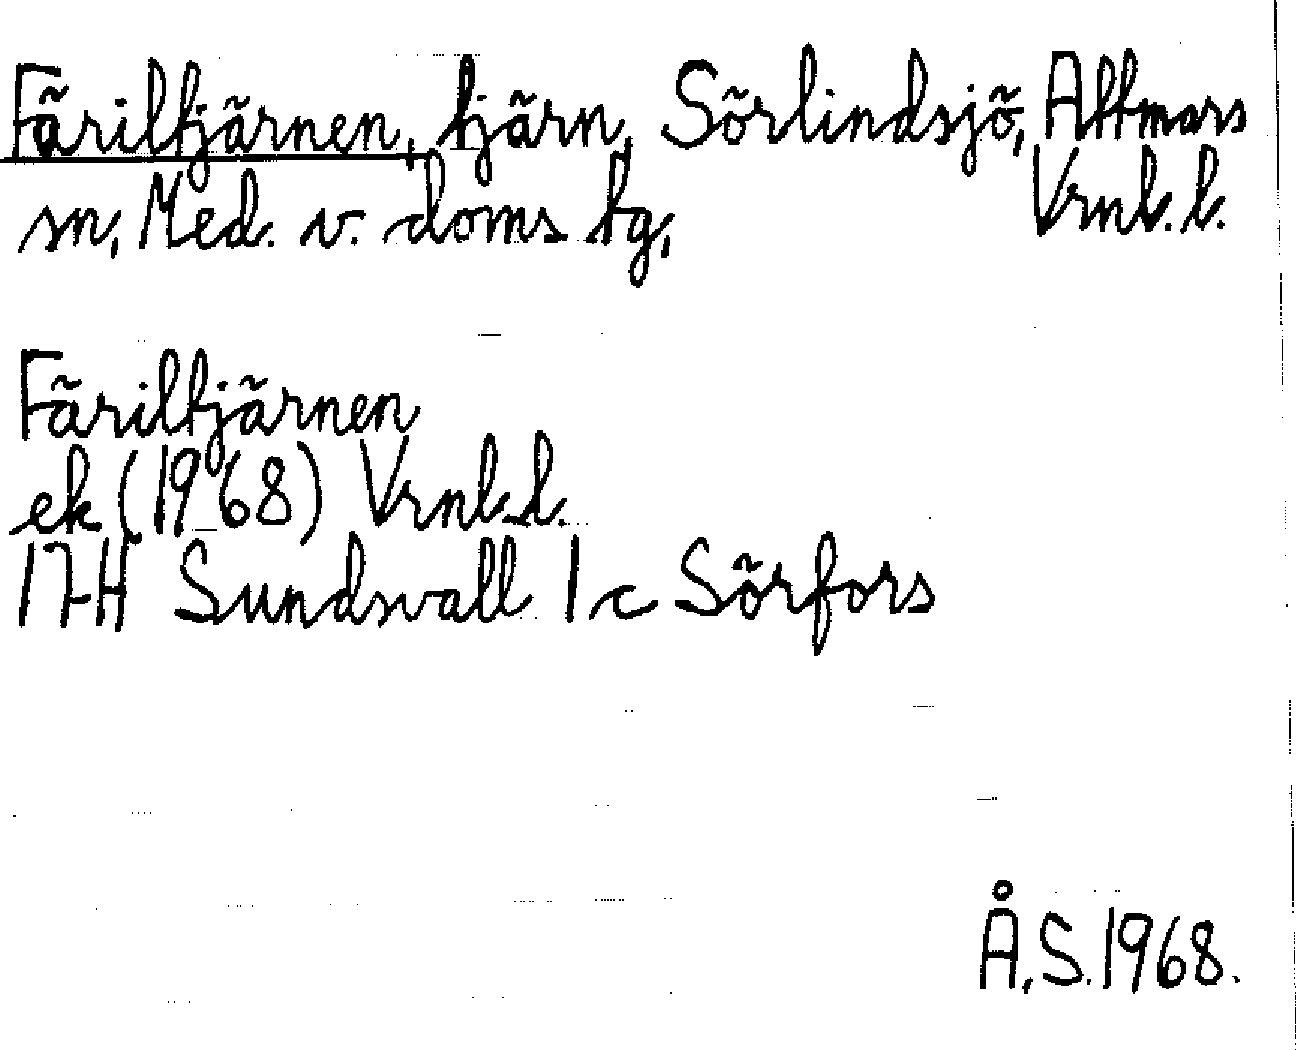 Färiltjärnen, tjärn, Sörlindsjö, Attmars
sn, Med. v. doms. tg, Vrnl. l.
Färiltjärnen
ek (1968) Vrnl. l.
17H Sundsvall 1c Sörfors
Å.S. 1968.